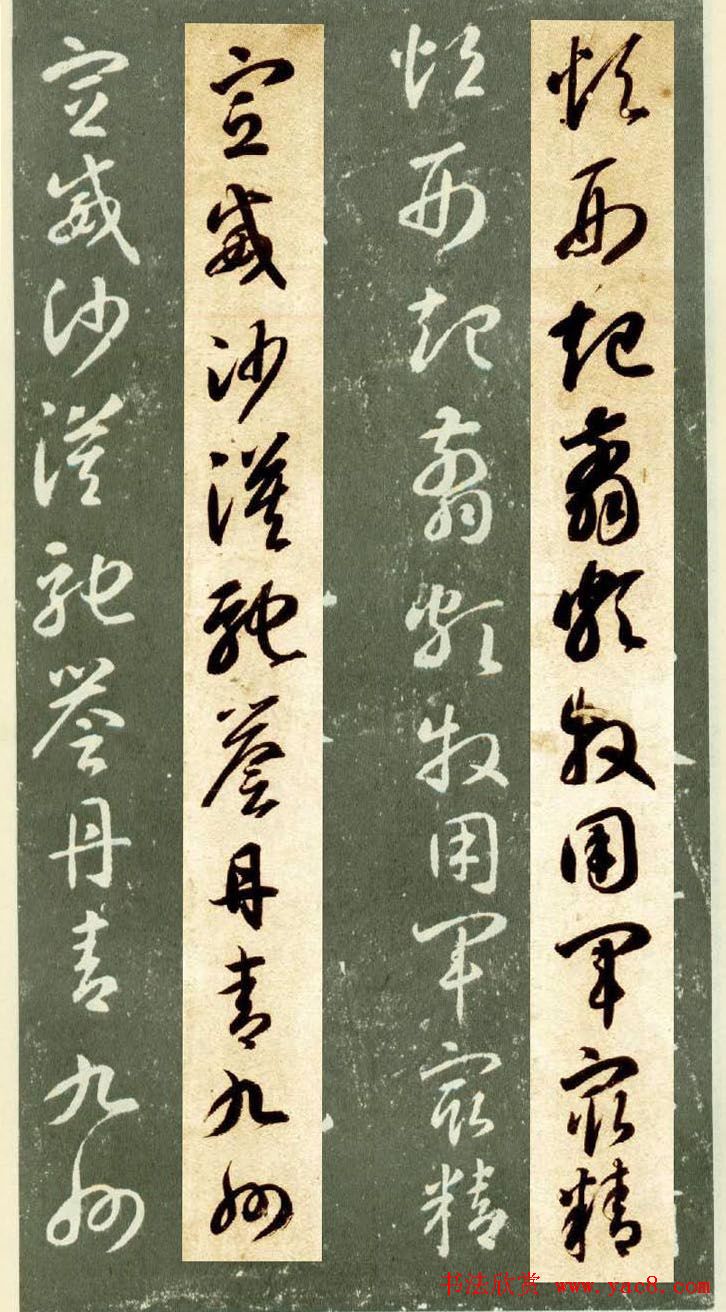 煩刑起翦頗牧用軍最精
煩刑起翦頗牧用軍最精
宣威沙漠馳譽丹青九州
宣威沙漠馳譽丹青九州
书法欣赏 www.yac8.com